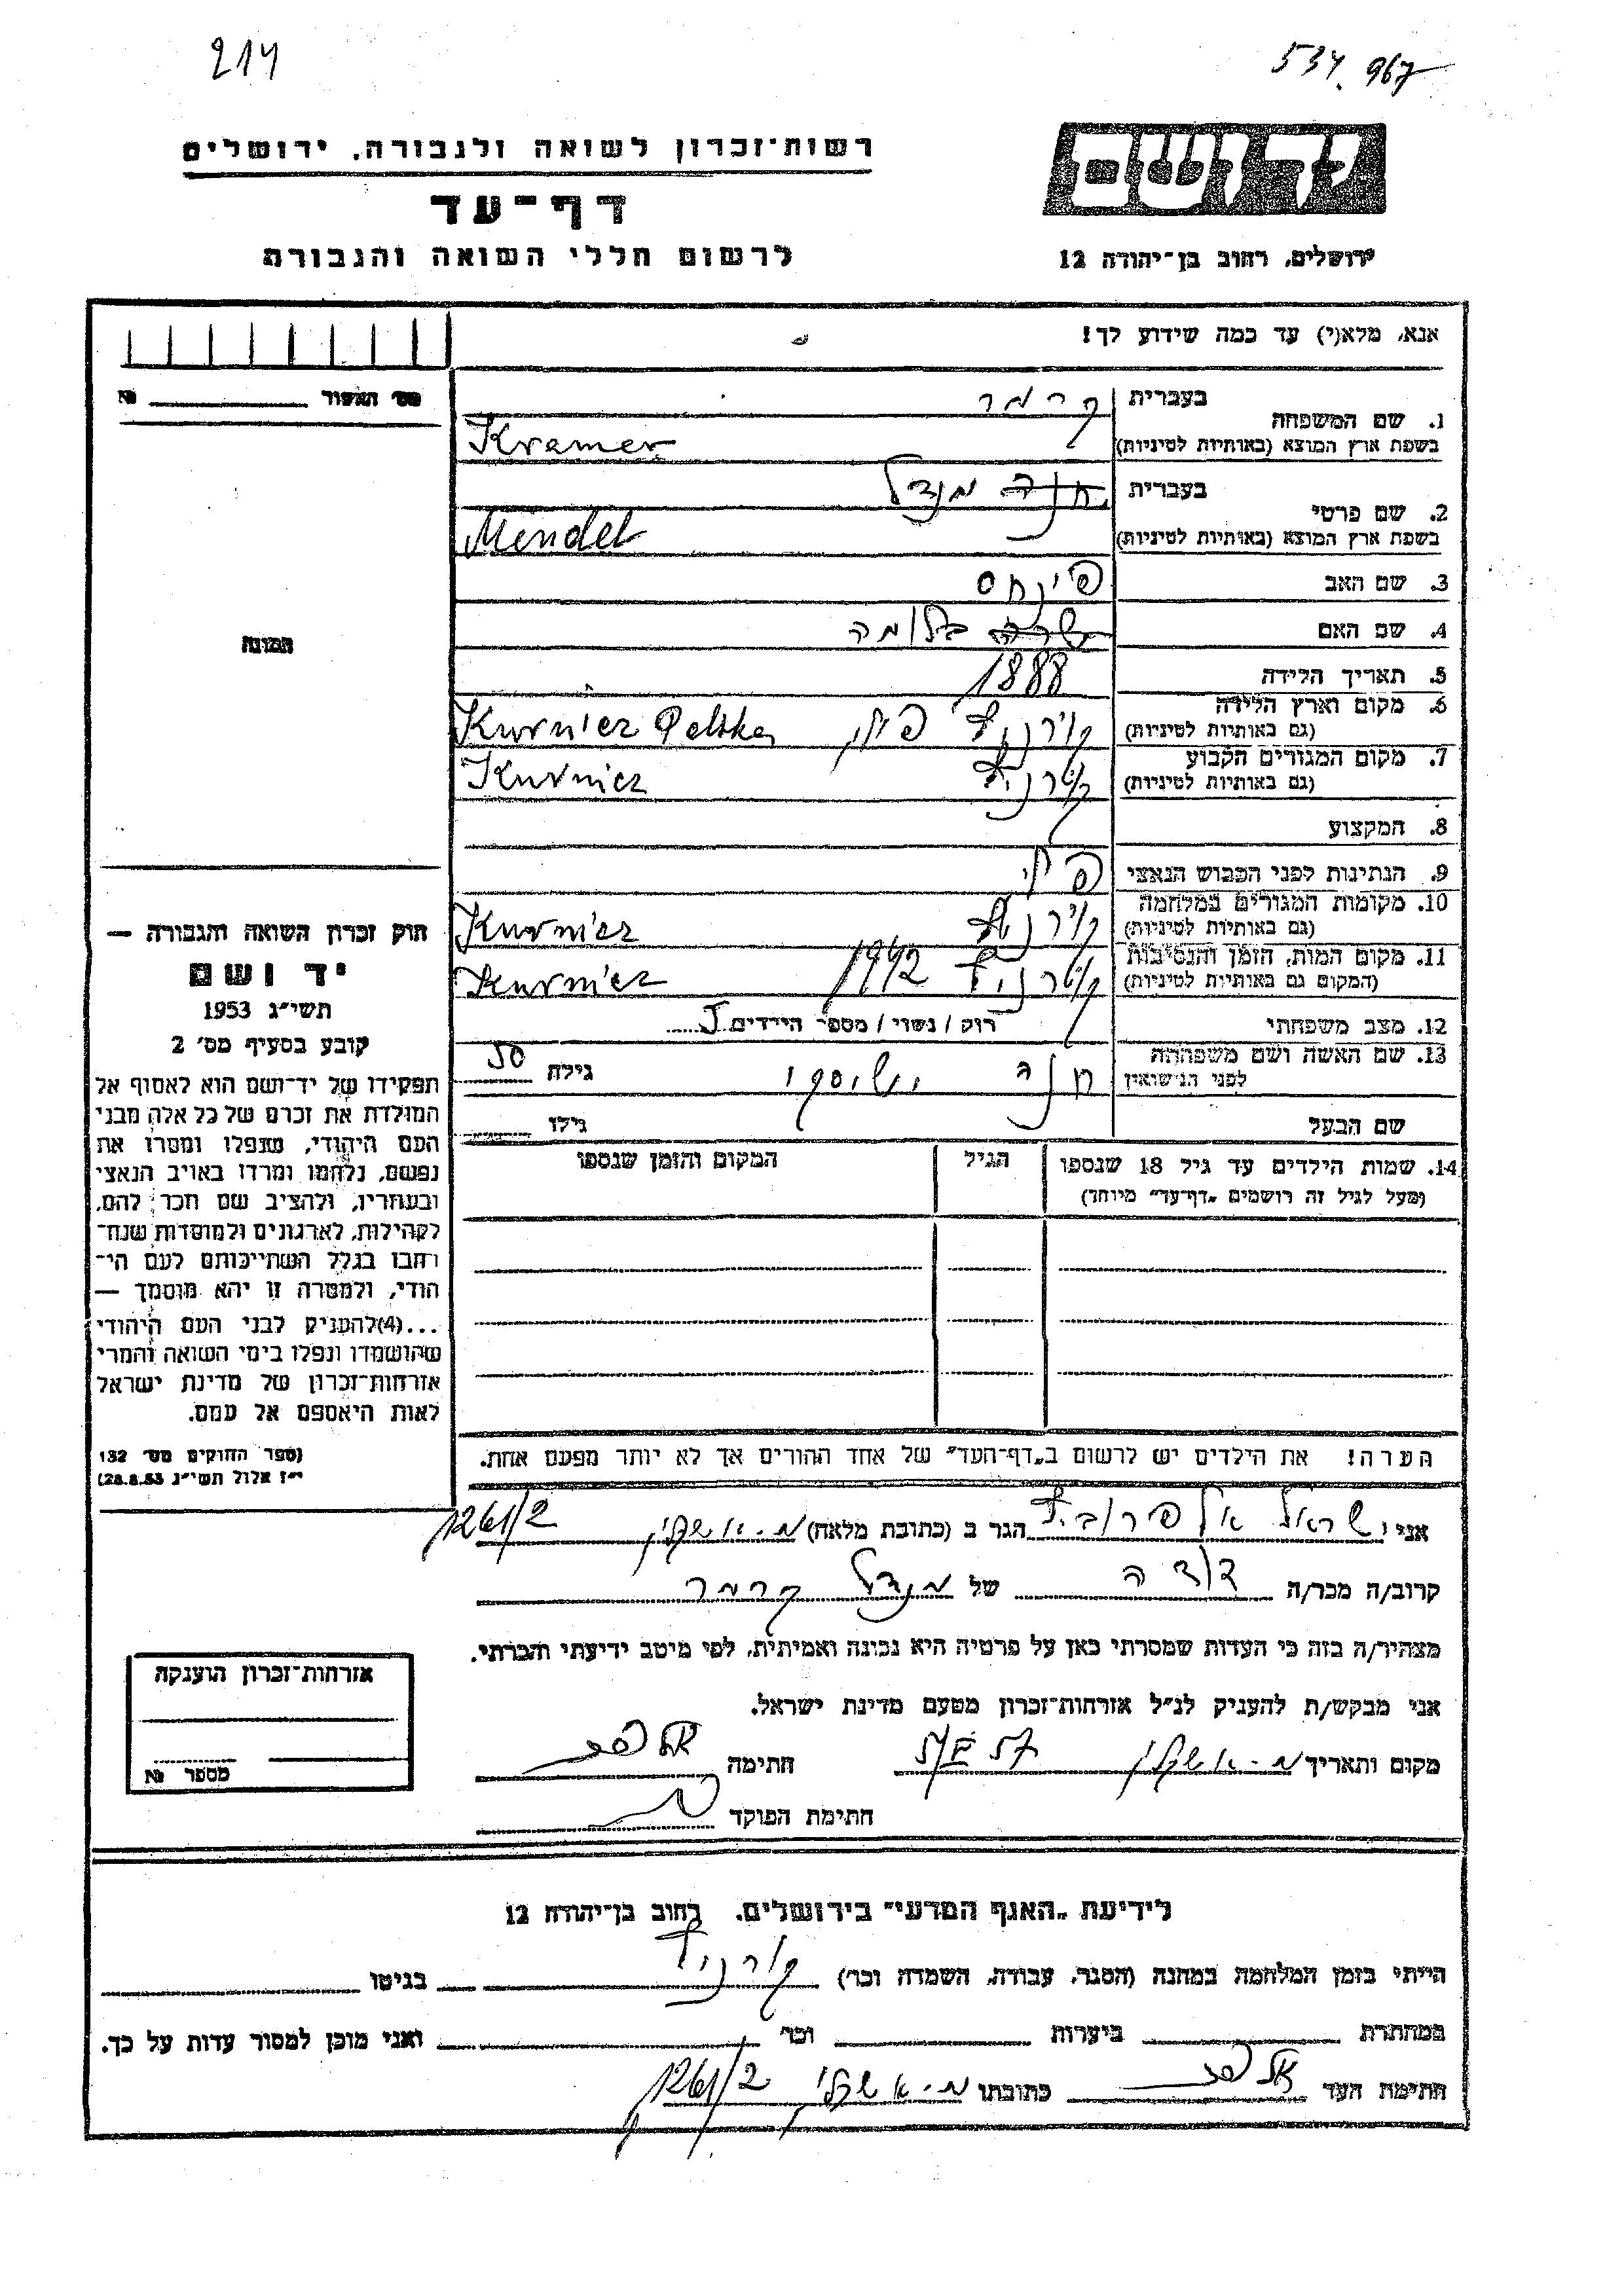 214
534.967
יד ושם
רשות־זכרון לשואה ולגבורה, ירושלים
דף־עד
לרשום חללי השואה והגבורה
ירושלים, רחוב בן־יהודה 12
אנא, מלא(י) עד כמה שידוע לך!
מס' האשור № 
1. שם המשפחה
בעברית קרמר
בשפת ארץ המוצא (באותיות לטיניות) Kramer
2. שם פרטי
בעברית חנה מנדל
בשפת ארץ המוצא (באותיות לטיניות) Mendel
3. שם האב פינחס
4. שם האם שרה בלומה
5. תאריך הלידה 1888
6. מקום וארץ הלידה
(גם באותיות לטיניות) קורניץ פולין Kurniez Polska
7. מקום המגורים הקבוע
(גם באותיות לטיניות) קורניץ Kurniez
8. המקצוע
9. הנתינות לפני הכבוש הנאצי פולין
10. מקומות המגורים במלחמה
(גם באותיות לטיניות) קורניץ Kurniez
11. מקום המות, הזמן והנסיבות
(המקום גם באותיות לטיניות) קורניץ 1942 Kurniez
12. מצב משפחתי רוק / נשוי / מספר הילדים
13. שם האשה ושם משפחתה
לפני הנישואין חנה גילה 50
שם הבעל גילו
14. שמות הילדים עד גיל 18 שנספו הגיל המקום והזמן שנספו
(מעל לגיל זה רושמים „דף־עד" מיוחד)
הערה! את הילדים יש לרשום ב„דף־העד" של אחד ההורים אך לא יותר מפעם אחת.
תמונה
חוק זכרון השואה והגבורה —
יד ושם
תשי"ג 1953
קובע בסעיף מס' 2
תפקידו של יד־ושם הוא לאסוף אל
המולדת את זכרם של כל אלה מבני
העם היהודי, שנפלו ומסרו את
נפשם, נלחמו ומרדו באויב הנאצי
ובעוזריו, ולהציב שם וזכר להם,
לקהילות, לארגונים ולמוסדות שנח־
רבו בגלל השתייכותם לעם הי־
הודי, ולמטרה זו יהא מוסמך —
...(4)להעניק לבני העם היהודי
שהושמדו ונפלו בימי השואה והמרי
אזרחות־זכרון של מדינת ישראל
לאות היאספם אל עמם.
(ספר החוקים מס' 132
י"ז אלול תשי"ג 28.8.53)
אני ישראל אלפרוביץ הגר ב (כתובת מלאה) מ.אשקלון 1261/2
קרוב/ה מכר/ה דודה של מנדל קרמר
מצהיר/ה בזה כי העדות שמסרתי כאן על פרטיה היא נכונה ואמיתית, לפי מיטב ידיעתי והכרתי.
אני מבקש/ת להעניק לנ"ל אזרחות־זכרון מטעם מדינת ישראל.
מקום ותאריך מ.אשקלון חתימה
חתימת הפוקד
אזרחות־זכרון הוענקה
מספר №
לידיעת „האגף המדעי" בירושלים, רחוב בן־יהודה 12
הייתי בזמן המלחמה במחנה (הסגר, עבודה, השמדה וכו') קורניץ בגיטו
במחתרת ביערות וכו' ואני מוכן למסור עדות על כך.
חתימת העד כתובתו מ.אשקלון 1261/2